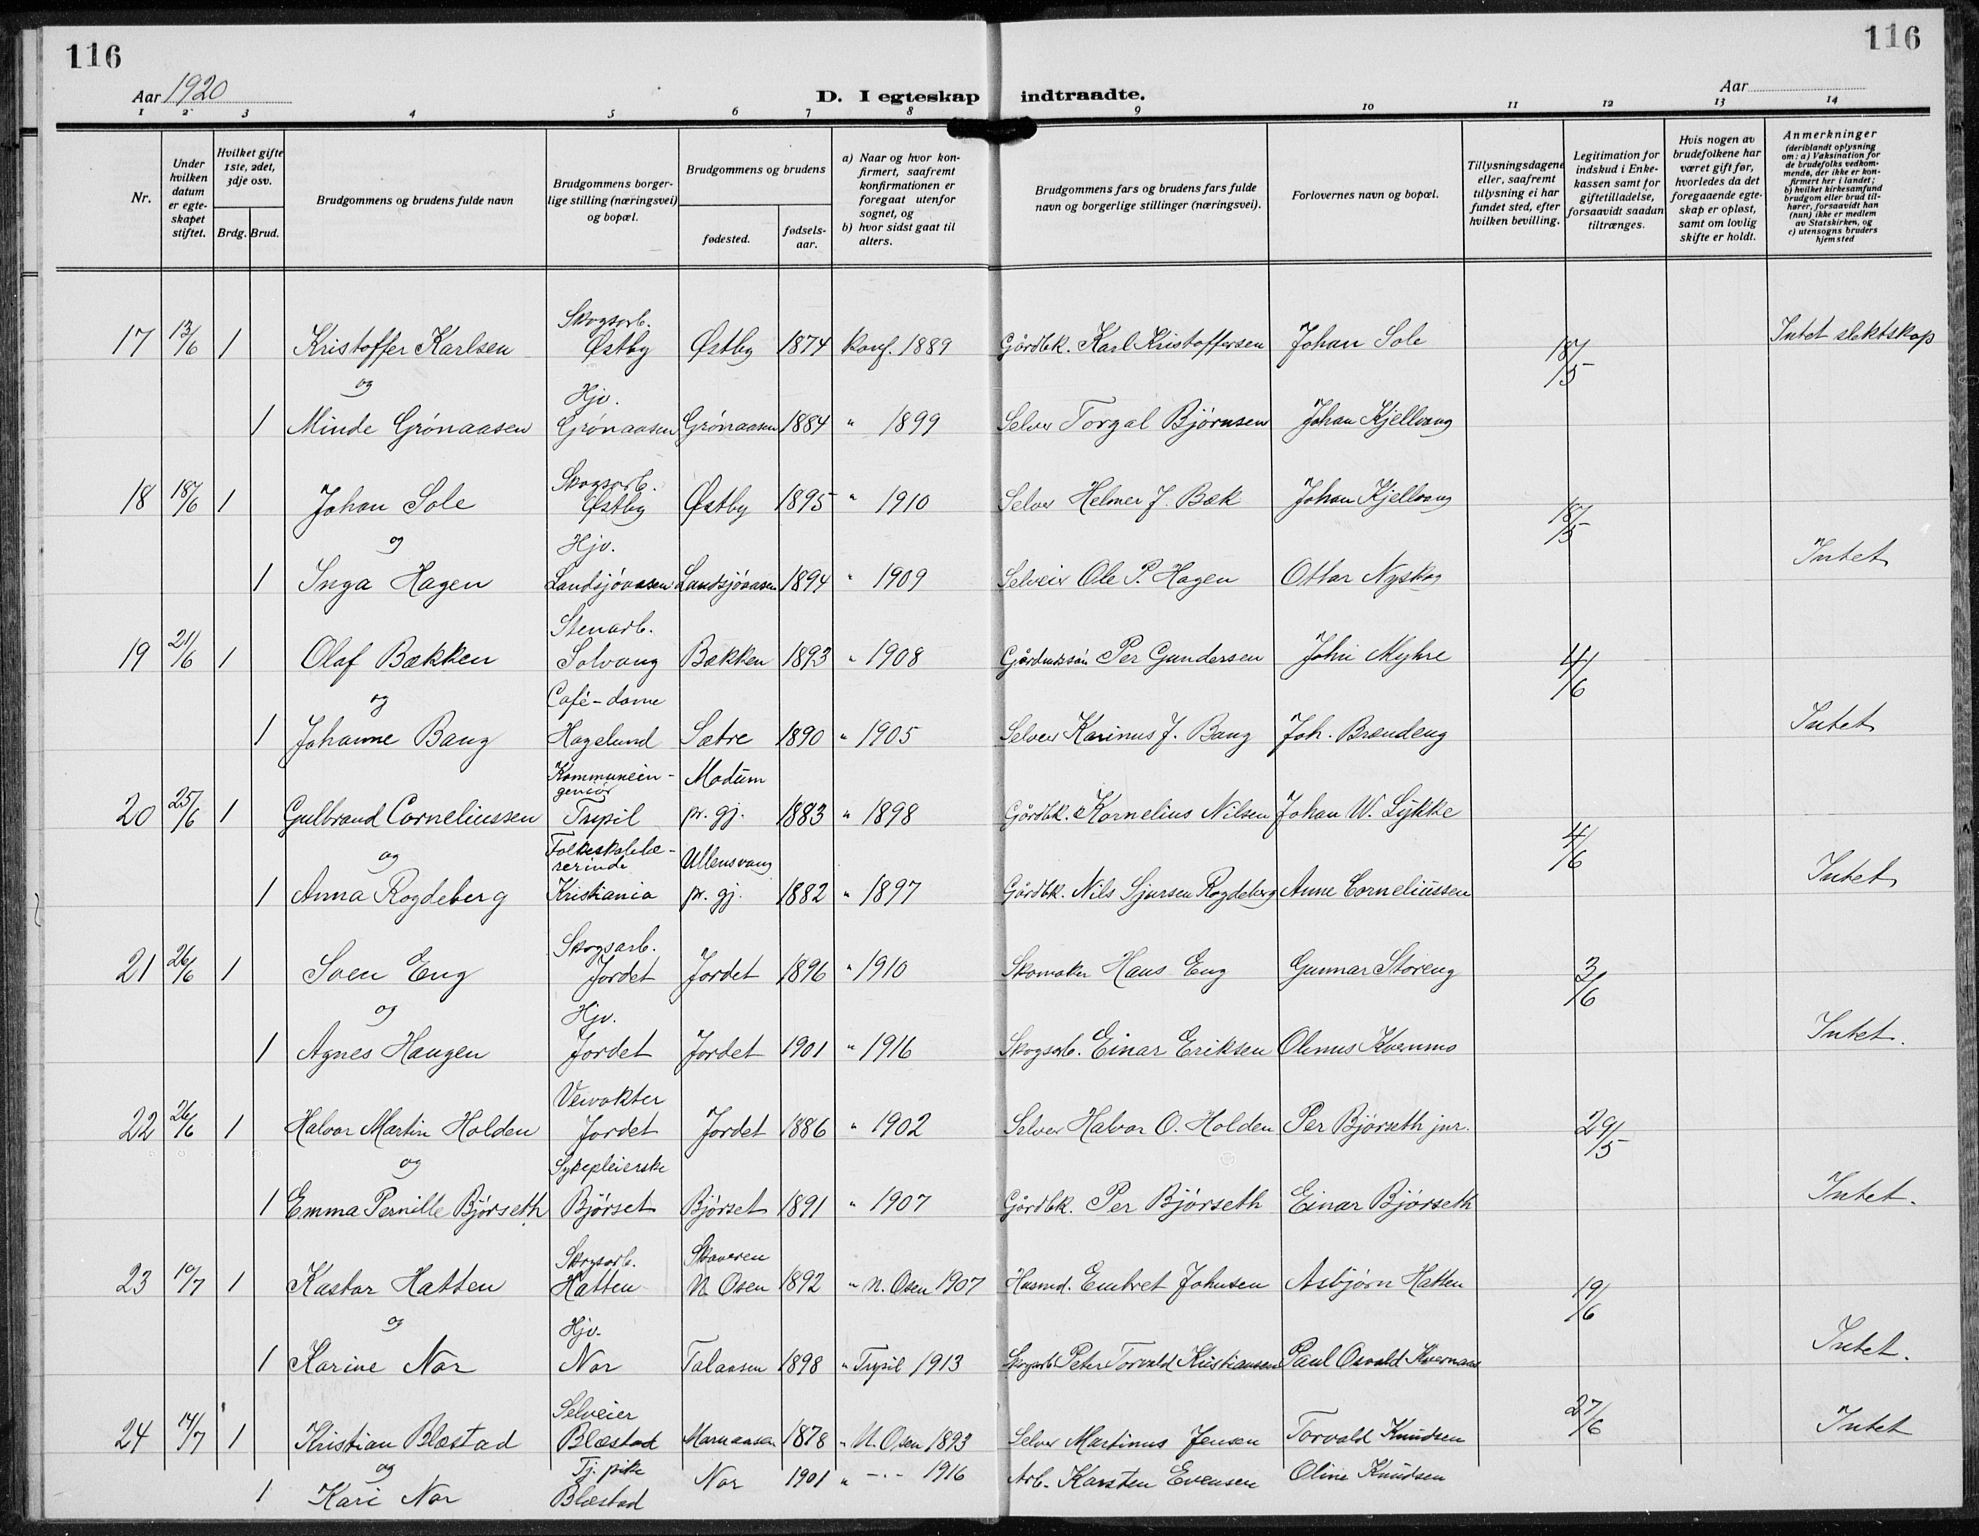 116
116
Aar 1920
D. I egteskap indtraadte.
Aar
1 2 3 4 5 6 7 8 9 10 11 12 13 14
Nr.
Under hvilken datum er egteskapet stiftet.
Hvilket gifte 1ste, 2det, 3dje osv.
Brdg. Brud.
Brudgommens og brudens fulde navn
Brudgommens borgerlige stilling (næringsvei) og bopæl.
Brudgommens og brudens
fødested.
fødselsaar.
a) Naar og hvor konfirmert, saafremt konfirmationen er foregaat utenfor sognet, og
b) hvor sidst gaat til alters.
Brudgommens fars og brudens fars fulde navn og borgerlige stillinger (næringsvei).
Forlovernes navn og bopæl.
Tillysningsdagene eller, saafremt tillysning ei har fundet sted, efter hvilken bevilling.
Legitimation for indskud i Enkekassen samt for giftetilladelse, forsaavidt saadan tiltrænges.
Hvis nogen av brudefolkene har været gift før, hvorledes da det foregaaende egteskap er opløst, samt om lovlig skifte er holdt.
Anmerkninger (deriblandt oplysning om: a) Vaksination for de brudefolks vedkommende, der ikke er konfirmert her i landet; b) hvilket kirkesamfund brudgom eller brud tilhører, forsaavidt han (hun) ikke er medlem av Statskirken, og c) utensogns bruders hjemsted
17 13/6 1 Kristoffer Karlsen Skogsarb. Østby Østby 1874 Konf. 1889 Gårdbk. Karl Kristoffersen Johan Sole 18/5 Intet slektskap
og
1 Minde Grønaasen Hjv. Grønaasen Grønaasen 1884 " 1899 Selvei Torgal Bjørnsen Johan Kjellvang
18 18/6 1 Johan Sole Skogsarb. Østby Østby 1895 " 1910 Selvei Helmer J. Bæk Johan Kjellvang 18/5
og
1 Inga Hagen Hjv. Landsjøaasen Landsjøaasen 1894 " 1909 Selveier Ole P. Hagen Ottar Nyskog Intet
19 21/6 1 Olaf Bækken Stenarb. Solvang Bækken 1893 " 1908 Per Gundersen John Myhre 4/6
og
1 Johanne Bang Café-dame Hagelund Sætre 1890 " 1905 Selveier Karinus J. Bang Joh. Brændeng Intet
20 25/6 1 Gulbrand Corneliussen Kommuneingeniør Trysil Modum pr. gj. 1883 " 1898 Gårdbk. Kornelius Nilsen Johan W. Lykke 4/6
og
1 Anna Rogdeberg Folkeskolelærerinde Kristiania Ullensvang pr. gj. 1882 " 1897 Gårdbk. Nils Sjursen Rogdeberg Anne Corneliussen Intet
21 26/6 1 Sven Eng Skogsarb. Jordet Jordet 1896 " 1910 Skomaker Hans Eng Gunnar Storeng 3/6
og
1 Agnes Haugen Hjv. Jordet Jordet 1901 " 1916 Skogsarb. Einar Eriksen Olemus Kvernmo Intet.
22 26/6 1 Halvor Martin Holden Veivokter Jordet Jordet 1886 " 1902 Selvei Halvor O. Holden Per Bjørseth jnr. 29/5
og
1 Emma Pernille Bjørseth Sykepleierske Bjørset Bjørset 1891 " 1907 Gårdbk. Per Bjørseth Einar Bjørseth Intet.
23 10/7 1 Kastar Hatten Skogsarb. Hatten Skaveren N. Osen 1892 " N. Osen 1907 Husmd. Embret Johnsen Asbjørn Hatten 19/6
og
1 Karine Nor Hjv. Nor Talaasen 1898 " Trysil 1913 Skogsarb. Peter Torvald Kristiansen Paul Osvald Kvernaas Intet.
24 14/7 1 Kristian Blæstad Selveier Blæstad 1878 " N. Osen 1893 Selvei Martinus Jensen Torvald Knudsen 27/6 Intet
og
1 Kari Nor Tj. pike Blæstad Nor 1901 " -"- 1916 Arb. Karsten Evensen Oline Knudsen